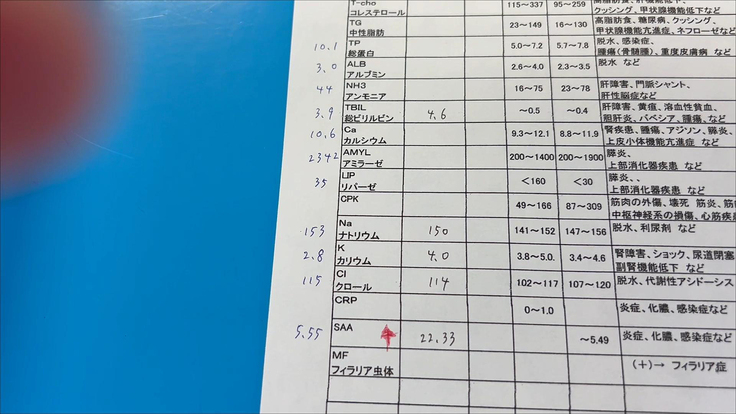 T-cho
コレステロール 115～337 95～259
クッシング、甲状腺機能低下など
TG
中性脂肪 23～149 16～130 高脂肪食、糖尿病、クッシング、
甲状腺機能亢進症、ネフローゼなど
10.1 TP
総蛋白 5.0～7.2 5.7～7.8 脱水、感染症、
腫瘍(骨髄腫)、重度皮膚病 など
3.0 ALB
アルブミン 2.6～4.0 2.3～3.5 脱水 など
44 NH3
アンモニア 16～75 23～78 肝障害、門脈シャント、
肝性脳症など
3.9 TBIL
総ビリルビン 4.6 ～0.5 ～0.4 肝障害、黄疸、溶血性貧血、
胆肝炎、バベシア、腫瘍、など
10.6 Ca
カルシウム 9.3～12.1 8.8～11.9 腎疾患、腫瘍、アジソン、膵炎、
上皮小体機能亢進症 など
2342 AMYL
アミラーゼ 200～1400 200～1900 膵炎、
上部消化器疾患 など
35 LIP
リパーゼ <160 <30 膵炎、、
上部消化器疾患 など
CPK 49～166 87～309 筋肉の外傷、壊死 筋炎、
中枢神経系の損傷、心筋疾
153 Na
ナトリウム 150 141～152 147～156 脱水、利尿剤 など
2.8 K
カリウム 4.0 3.8～5.0. 3.4～4.6 腎障害、ショック、尿道閉塞
副腎機能低下 など
115 Cl
クロール 114 102～117 107～120 脱水、代謝性アシドーシス
CRP 0～1.0 炎症、化膿、感染症など
5.55 SAA 22.33 ～5.49 炎症、化膿、感染症など
MF
フィラリア虫体 (+)→ フィラリア症